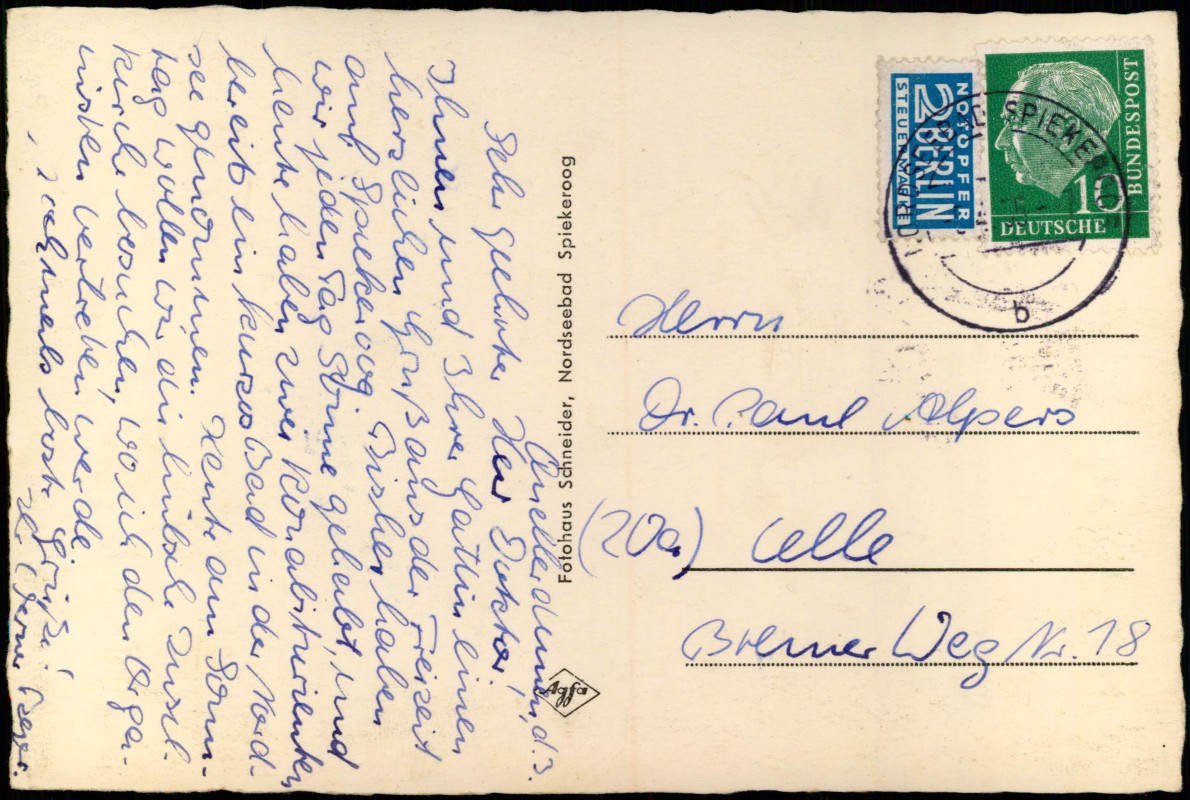 d. 3.
Sehr geehrter Herr Doktor!
Ihnen und Ihrer Gattin einen
herzlichen Gruß aus der Freizeit
auf Spiekeroog. Bisher haben
wir jeden Tag Sonne gehabt, und
heute haben zwei Vorabiturienten
bereits ein kurzes Bad in der Nord-
see genommen. Heute am Sonn-
tag wollen wir die hübsche Insel-
kirche besuchen, wo ich den Orga-
nisten vertreten werde.
Nochmals beste Grüße!
Ihr Werner
Fotohaus Schneider, Nordseebad Spiekeroog
Agfa
NOTOPFER
2 BERLIN
STEUERMARKE
10
DEUTSCHE
BUNDESPOST
SPIEKEROOG
b
Herrn
Dr. Paul Alpers
(20a) Celle
Bremer Weg Nr. 18